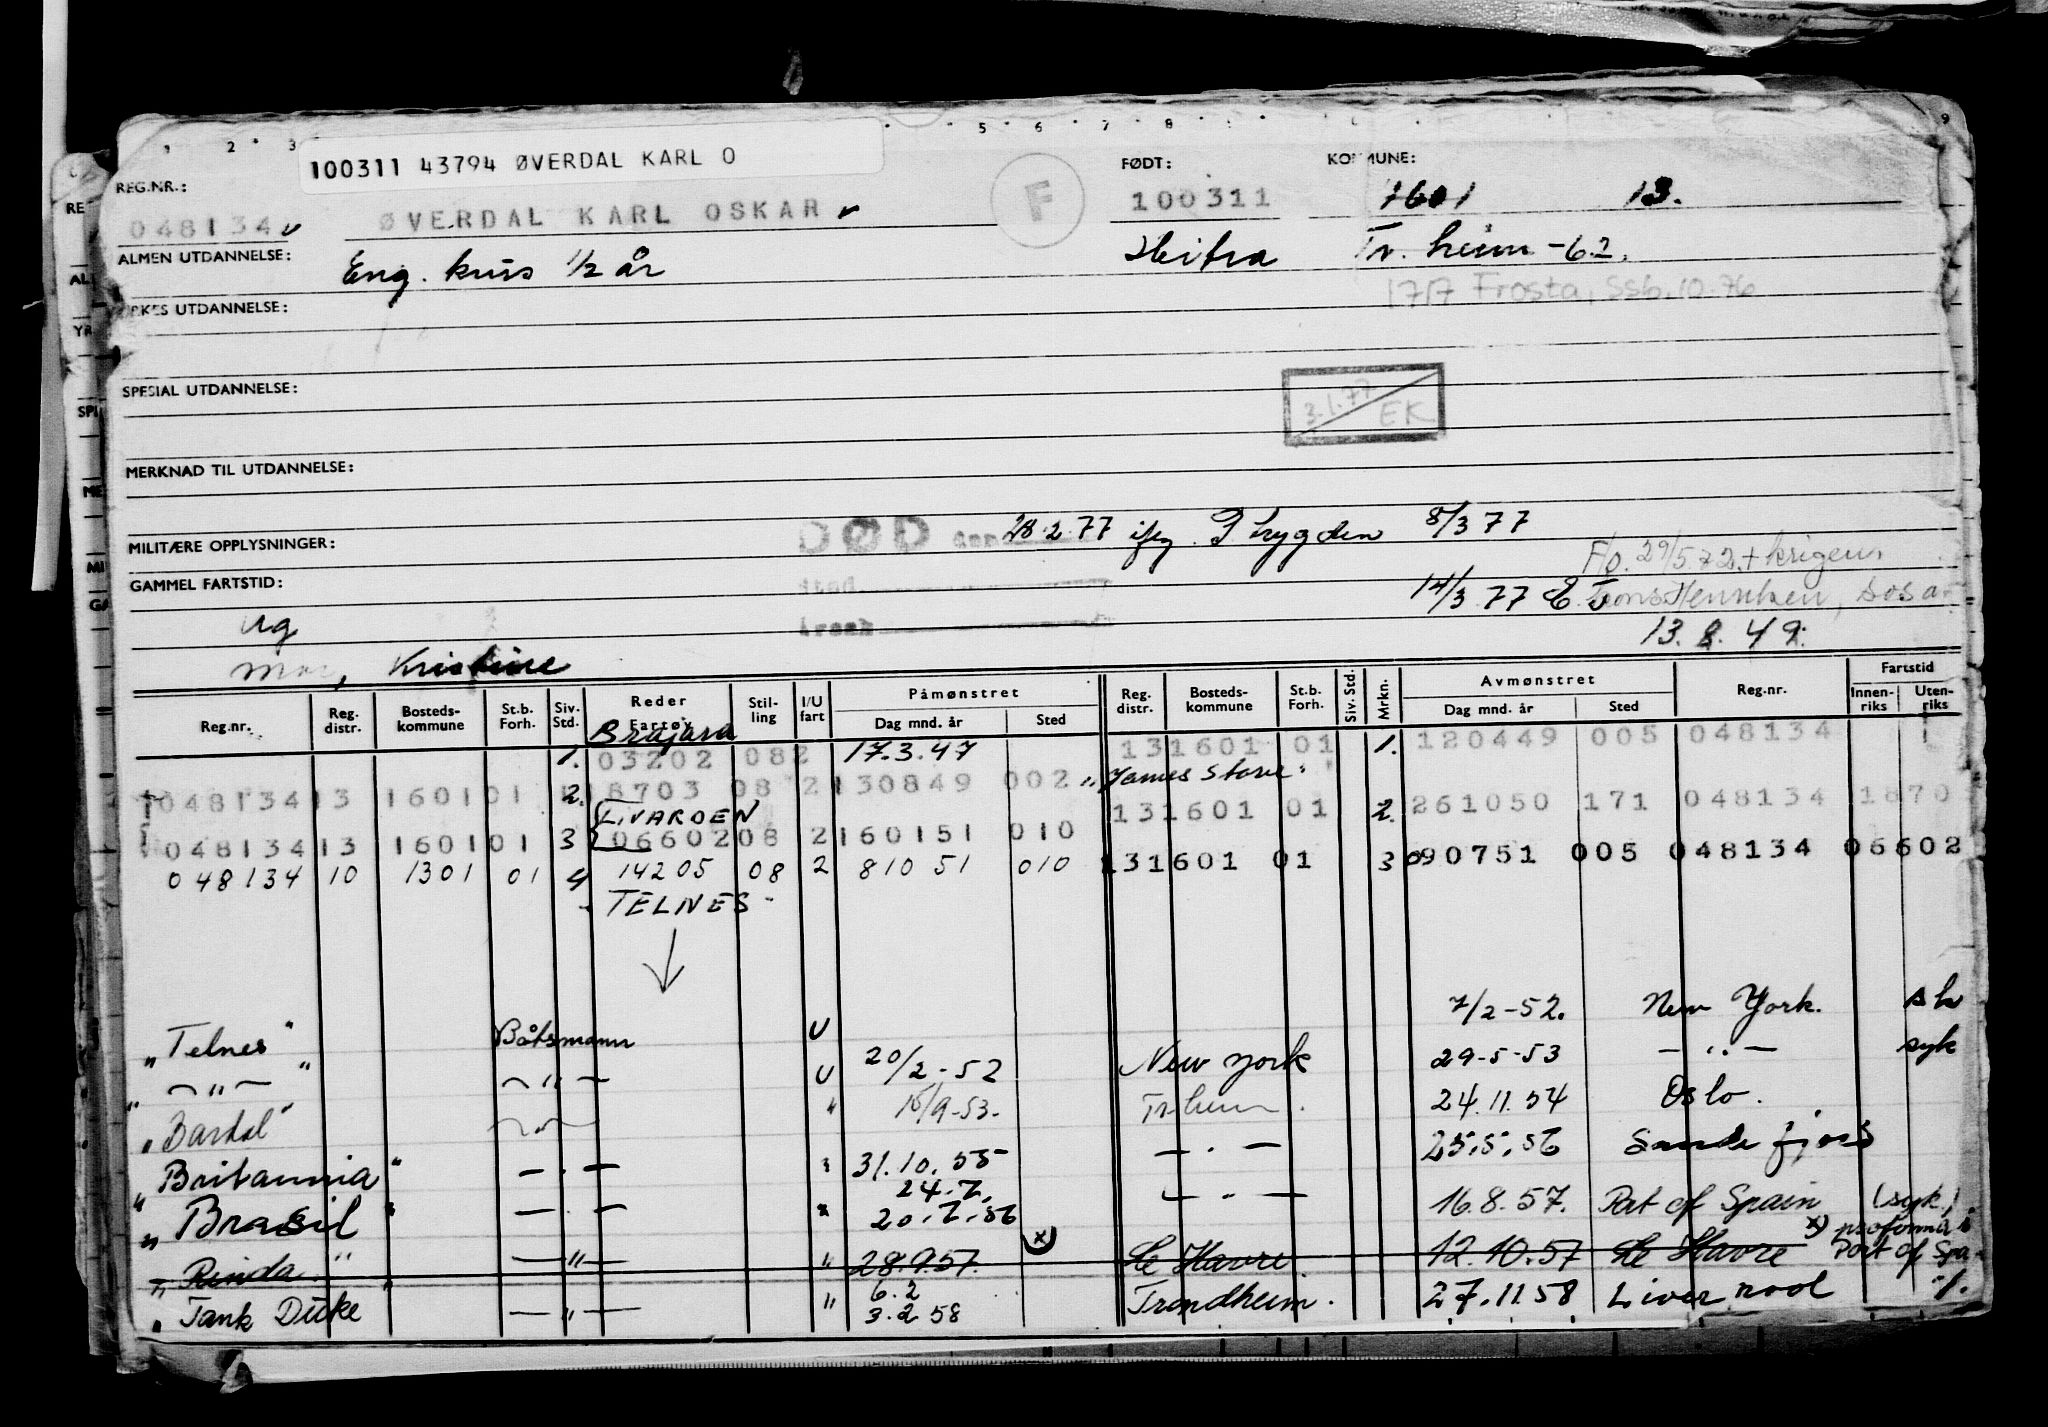 100311 43794 ØVERDAL KARL O
REG.NR.: FØDT: KOMMUNE:
048134 ØVERDAL KARL OSKAR F 100311 1601 13.
ALMEN UTDANNELSE: Eng. kurs 1/2 år Hitra Tr. heim -62.
1717 Frosta, SSb. 10.76
YRKES UTDANNELSE:
SPESIAL UTDANNELSE:
3.1.77 EK
MERKNAD TIL UTDANNELSE:
MILITÆRE OPPLYSNINGER: DØD den 28.2.77 ifg. Trygden 8/3 77
GAMMEL FARTSTID: sted 14/3 77 F/o. 29/5.72 + krigen
Ug årsak 13.8.49.
Mor, Kristine
Reg.nr. Reg. distr. Bosteds- kommune St.b. Forh. Siv. Std. Reder Fartøy Stil- ling I/U fart Påmønstret Dag mnd. år Sted Reg. distr. Bosteds- kommune St.b. Forh. Siv. Std. Mrkn. Avmønstret Dag mnd. år Sted Reg.nr. Fartstid Innen- riks Uten- riks
Brajara
1. 03202 08 2 17.3.47 13 1601 01 1. 120449 005 048134
"James Stove"
048134 13 1601 01 2. 18703 08 2 130849 002 13 1601 01 2. 261050 171 048134 1870
LIVARDEN
048134 13 1601 01 3 06602 08 2 160151 010 131601 01 3 090751 005 048134 06602
048134 10 1301 01 4 14205 08 2 81051 010
- TELNES -
"Telnes" Båtsmann U 7/2-52. New York.
" — " — " — " — U 20/2-52 New York 29-5-53 — " — syk
"Bardal" " 15/9-53. Tr.heim. 24.11.54 Oslo.
"Britannia" — " — " 31.10.55 — " — 25.5.56 Sandefjord
24.7.
"Brasil" — " — " 20.7.56 — " — 16.8.57. Port of Spain (syk)
"Rinda" — " — " 28.9.57. x) Le Havre. 12.10.57 Le Havre x) proforma i Port of Spa-
6.2
"Tank Duke" — " — " 3.2.58 Trondheim. 27.11.58 Liverpool